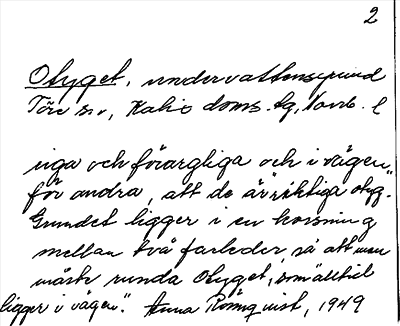 2
Otyget, undervattensgrund
Töre sn, Kalix doms. tg, Norrb. l
iga och förargliga och i vägen"
för andra, att de är riktiga otyg.
Grundet ligger i en korsning
mellan två farleder, så att man
måste runda Otyget, "som alltid
ligger i vägen". Anna Rönnquist, 1949